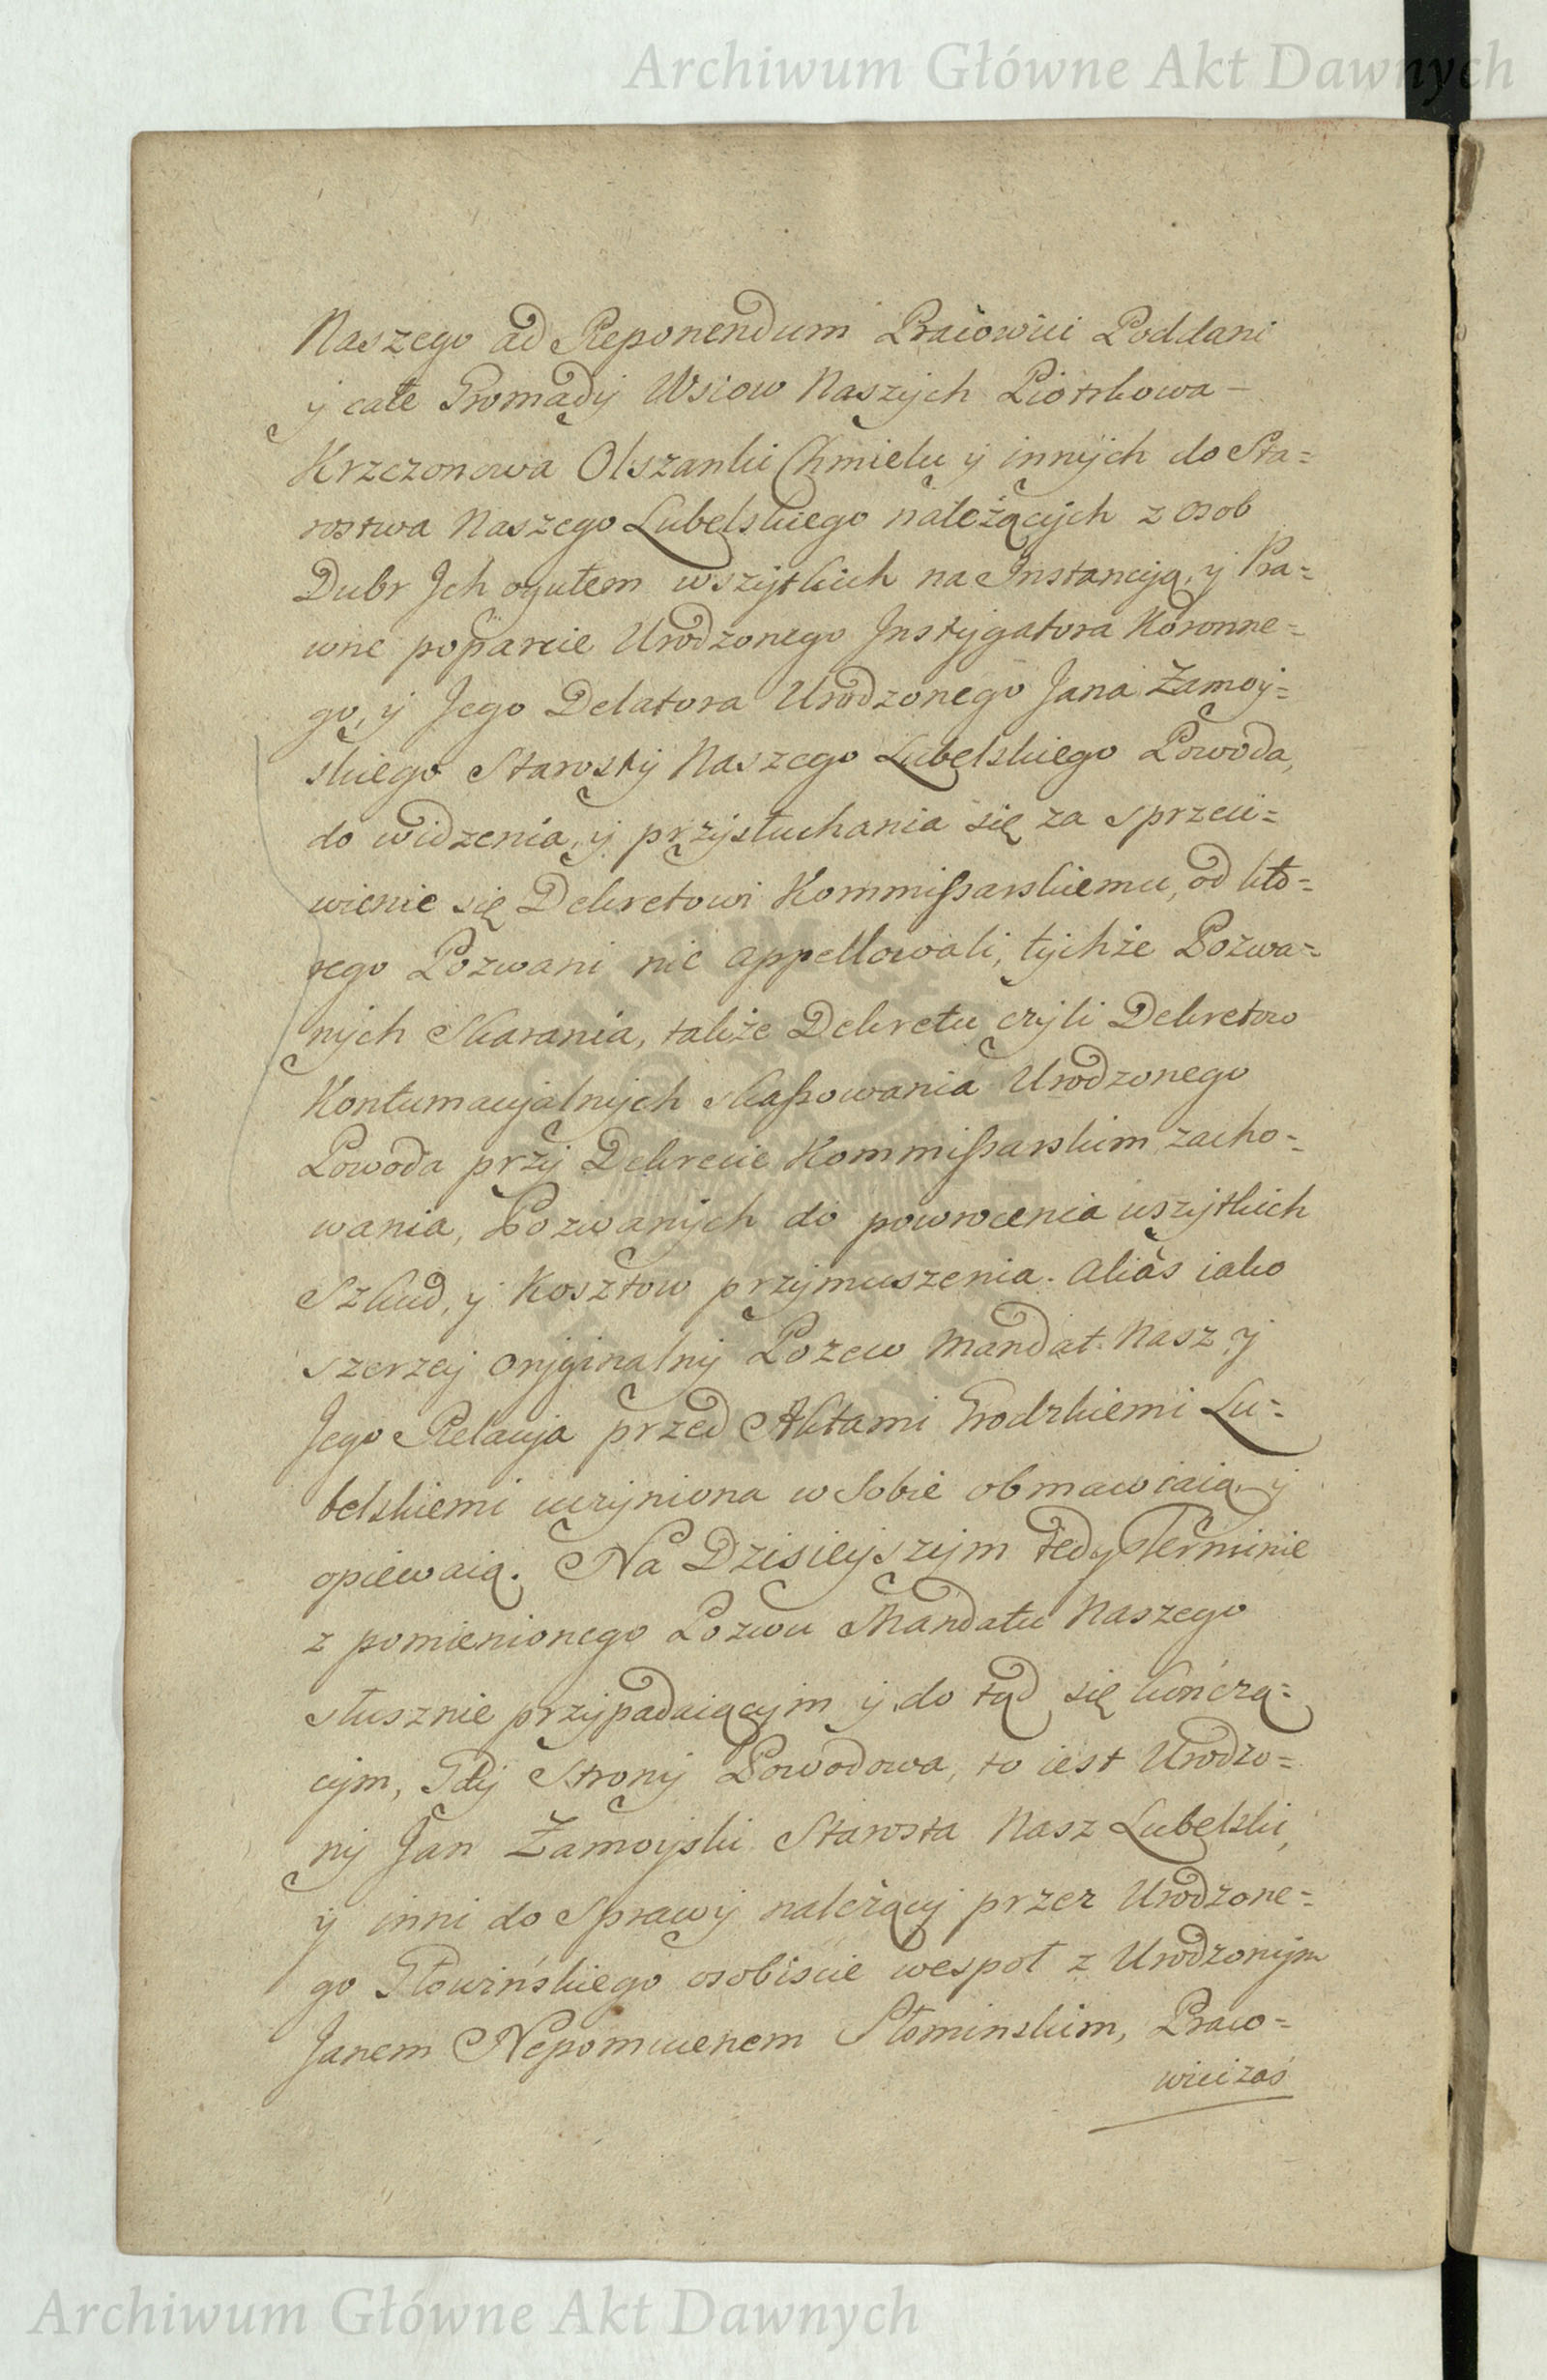 Archiwum Główne Akt Dawnych
Naszego ad Reponendum Pracowici Poddani
y całe Gromady Wsiow Naszych Piotrkowa –
Krzczonowa Olszanki Chmielu y innych do Sta=
rostwa Naszego Lubelskiego należących z osob
Dubr Jch ogułem wszytkich na Jnstancyą, y Pra=
wne poparcie Urodzonego Jnstygatora Koronne=
go, y Jego Delatora Urodzonego Jana Zamoy=
skiego Starosty Naszego Lubelskiego Powoda,
do widzenia, y przysłuchania się za sprzeci=
wienie się Dekretowi Kommissarskiemu, od któ=
rego Pozwani nie appellowali, tychże Pozwa=
nych Skarania, także Dekretu czyli Dekretow
Kontumacyalnych skassowania Urodzonego
Powoda przy Dekrecie Kommissarskim zacho=
wania, Pozwanych do powrocenia wszytkich
Szkud, y Kosztow przymuszenia. Aliàs iako
szerzey oryginalny Pozew Mandat Nasz y
Jego Relacya przed Aktami Grodzkiemi Lu=
belskiemi uczyniona w Sobie obmawiaią y
opiewaią. Na Dzisieyszym tedy Terminie
z pomienionego Pozwu Mandatu Naszego
słusznie przypadaiącym y do tąd się kończą=
cym, Gdy Strony Powodowa, to iest Urodzo=
ny Jan Zamoyski Starosta Nasz Lubelski,
y inni do Sprawy należący przez Urodzone=
go Głowińskiego osobiscie wespoł z Urodzonym
Janem Nepomucenem Słominskim, Praco=
wici zaś
Archiwum Główne Akt Dawnych